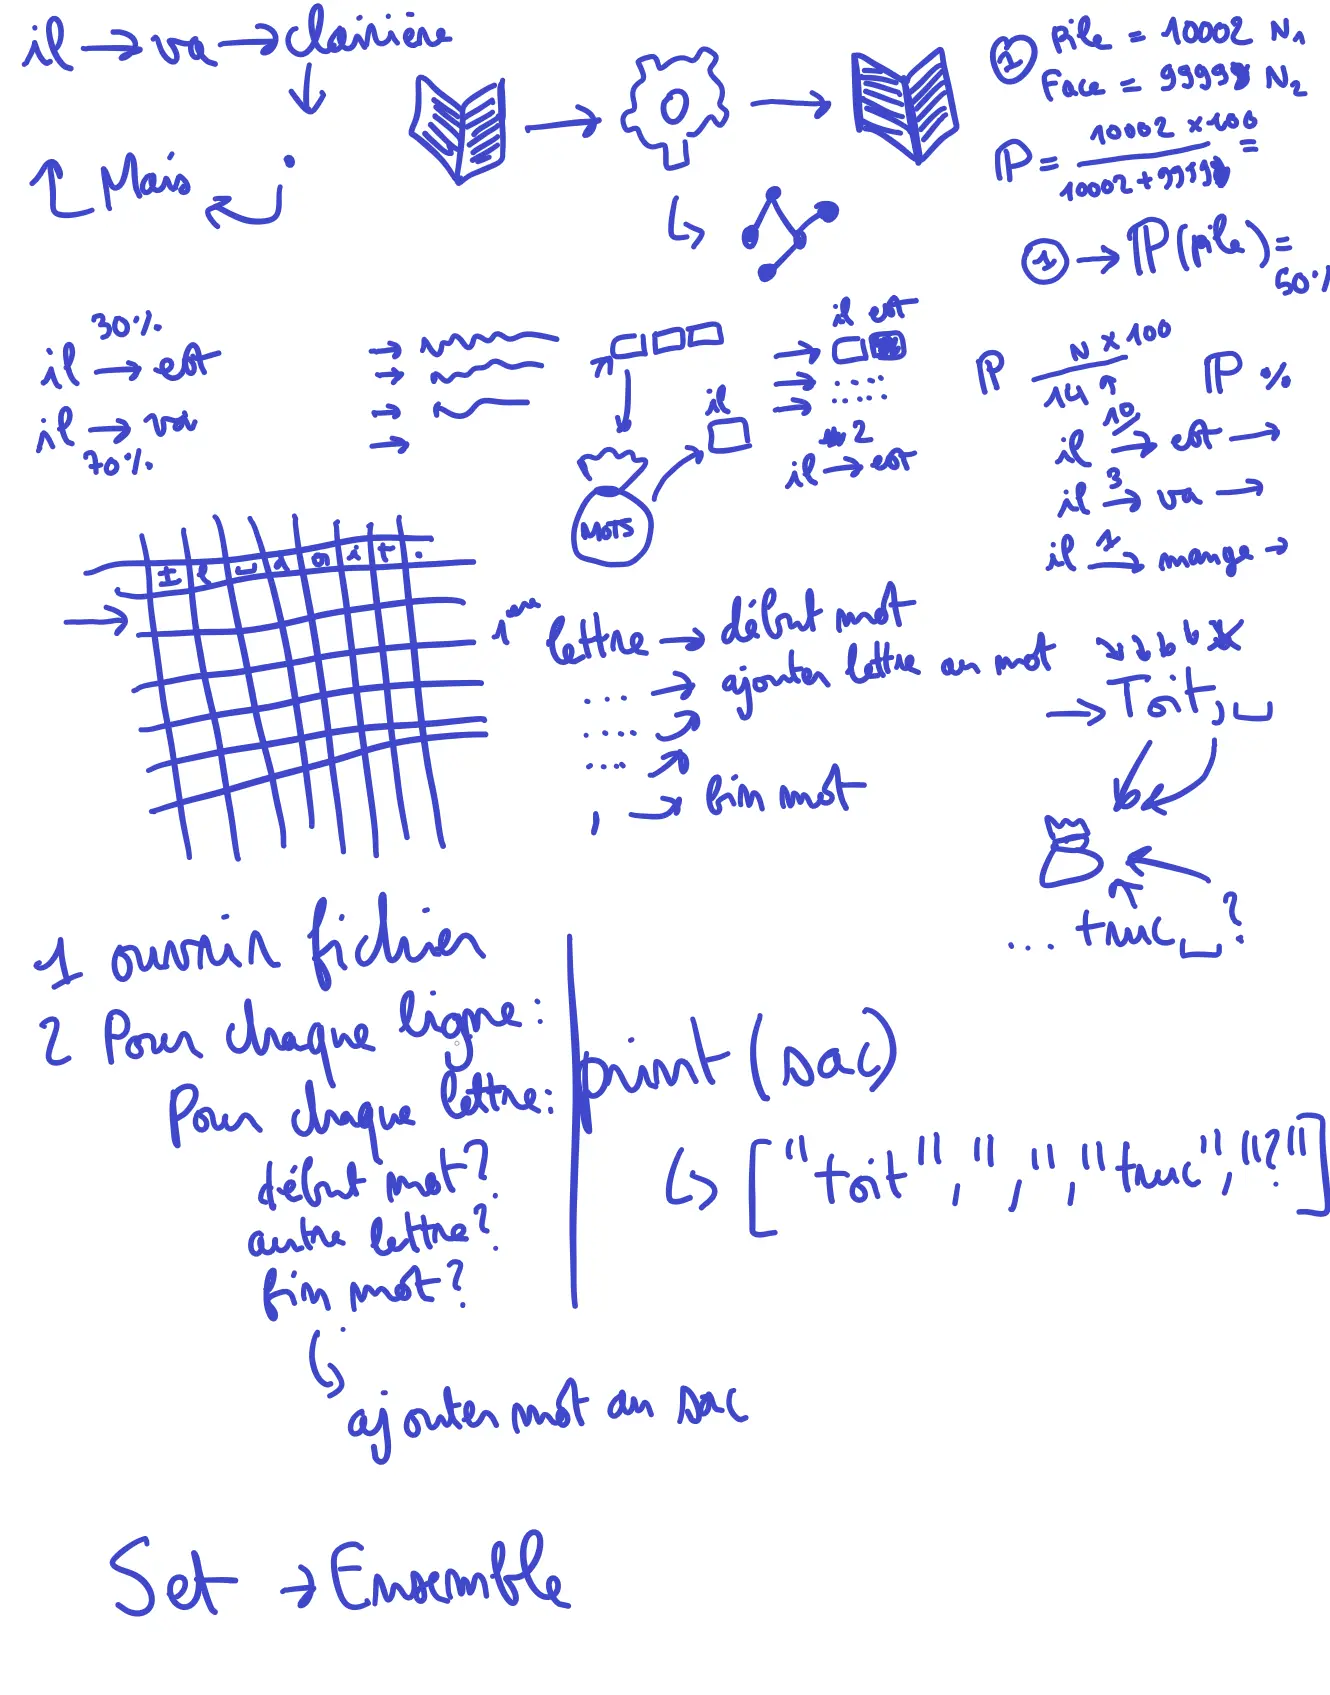 il → va → clairière
↓
.
Mais
① Pile = 10002 N₁
Face = 9999 N₂
P = 10002 × 100 / 10002 + 9999 =
① → P(pile) = 50%
30%
il → est
il → va
70%
MOTS
il
il est
2
il → est
P N × 100 / 14 P %
10
il → est →
3
il → va →
1
il → mange →
I l ␣ a o i t .
1ère lettre → début mot
.... → ajouter lettre au mot
..... →
.... →
, → fin mot
→ Toit, ␣
... truc ␣ ?
1 ouvrir fichier
2 Pour chaque ligne :
Pour chaque lettre :
début mot ?
autre lettre ?
fin mot ?
ajouter mot au sac
print (sac)
["toit", ",", "truc", "?"]
Set → Ensemble